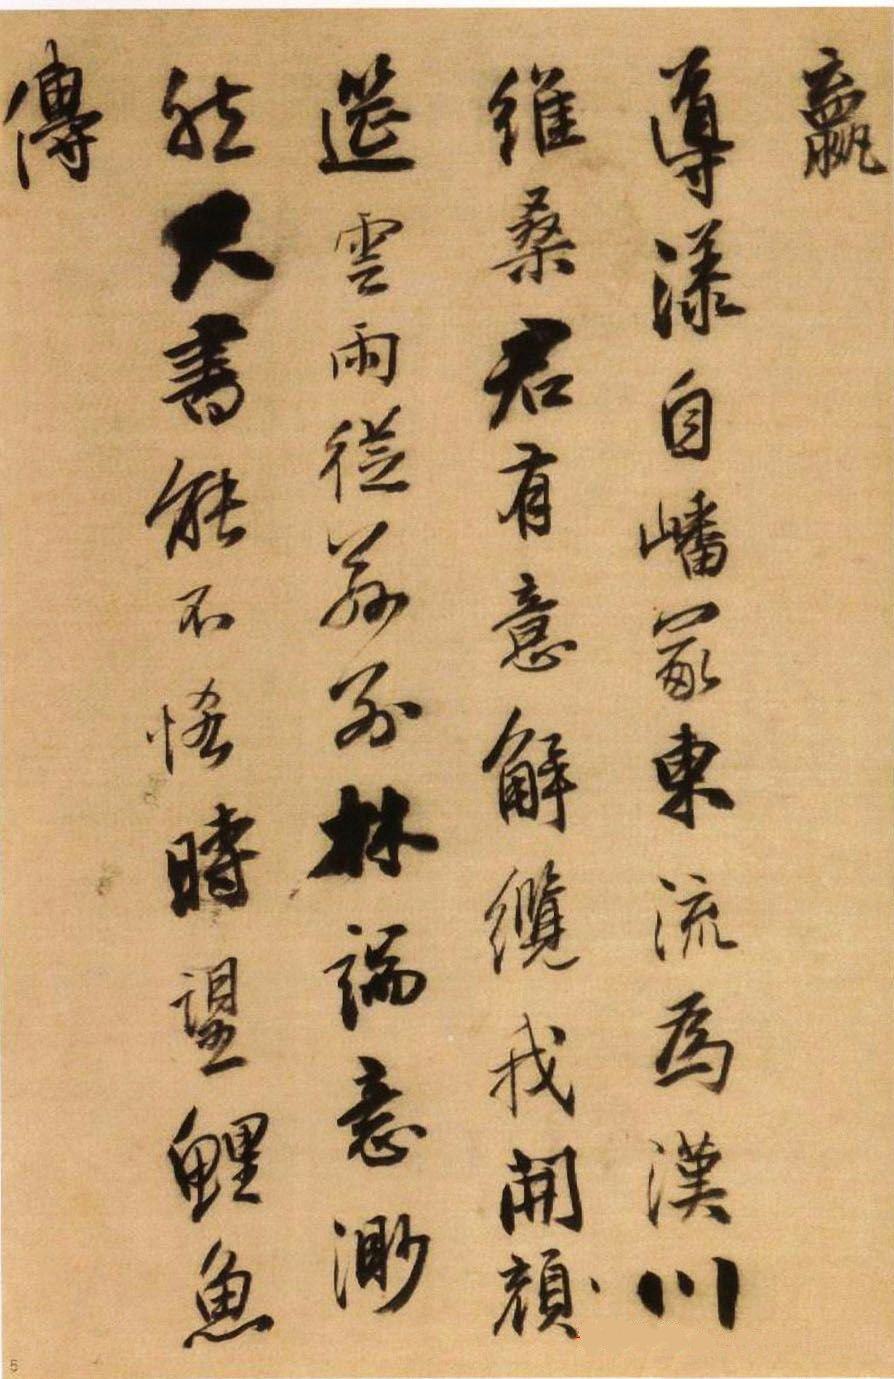 導漾自嶓冢東流為漢川
維桑君有意解纜我開顏
筵雲雨從茲別林端意渺
然尺書能不悋時望鯉魚
傳
5